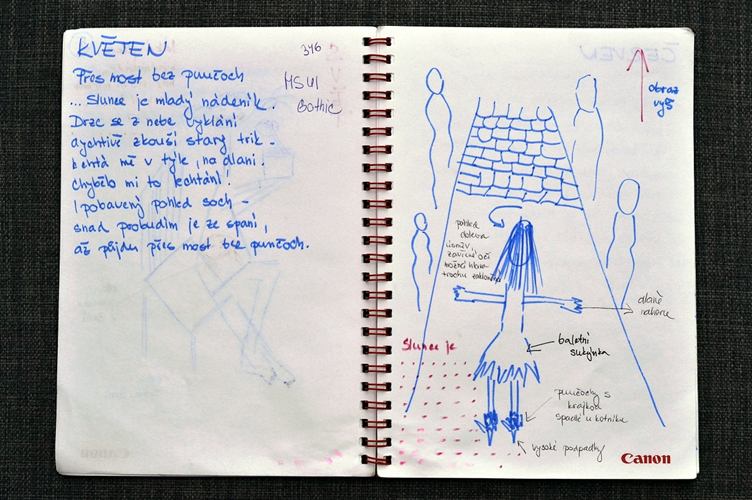 KVĚTEN
346
MS UI
Gothic
Přes most bez punčoch
... Slunce je mladý nádeník.
Drze se z nebe vyklání
a chtivě zkouší starý trik -
lechtá mě v týle, na dlani.
Chybělo mi to lechtání!
I pobavený pohled soch -
snad probudím je ze spaní,
až přijdu přes most bez punčoch.
obraz
výš
pohled
doleva
úsměv,
zavřené oči
hlava
trochu zakloněná
dlaně
nahoru
Slunce je
baletní
sukýnka
punčochy s
krajkou
spadlé u kotníku
vysoké podpatky
Canon